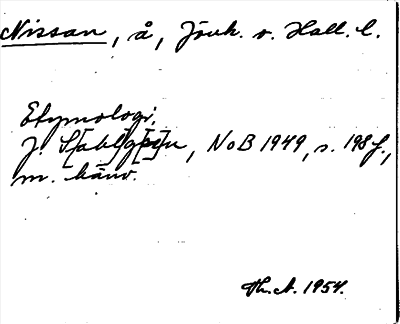 Nissan, å, Jönk. o. Hall. l.
Etymologi.
J. S[ahl]g[re]n, NoB 1949, s. 198 f.,
m. hänv.
Th. A. 1954.